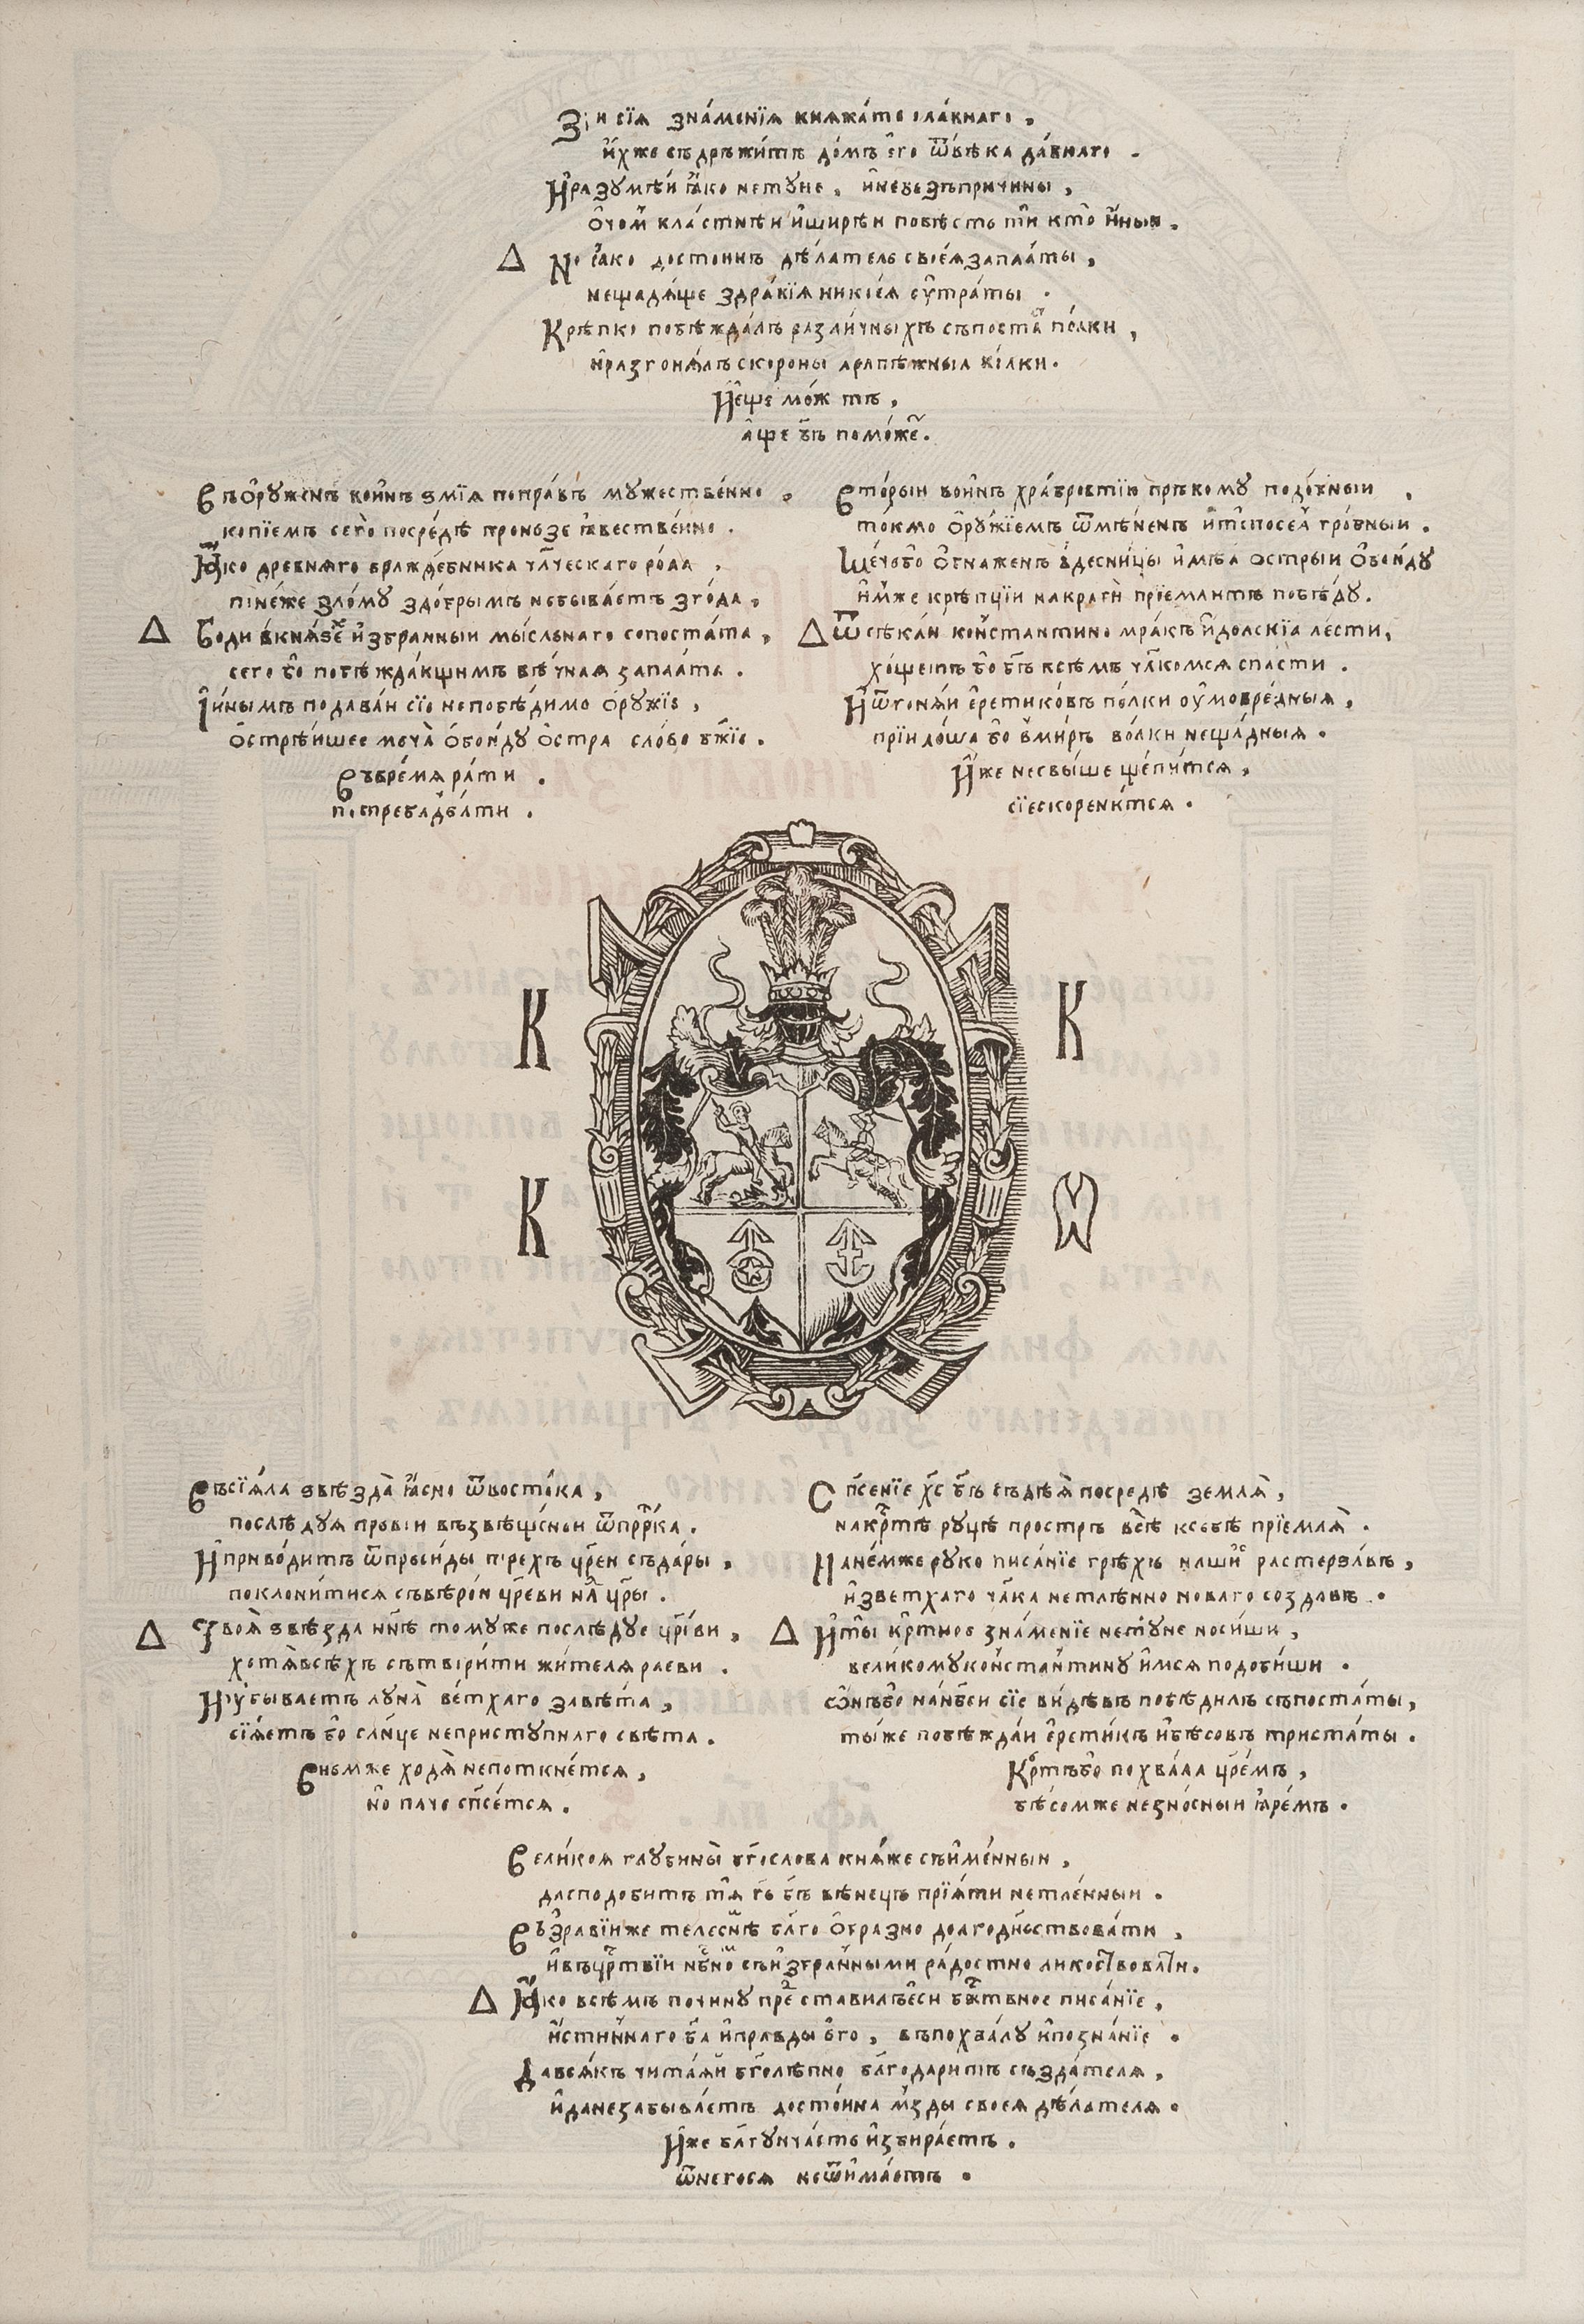 Зри сїѧ зна́менїѧ кнѧжа́те сла́внаго ,
и҆́хже съдръжи́тъ до́мъ є҆го ѿвѣка да́внаго .
И҆разꙋмѣй ꙗ҆́ко нетꙋне , и҆небезъпричины ,
Но ꙗ҆́ко достоинъ дѣ́латель своєѧ̀ запла́ты ,
нещадѧ́ще здра́вїѧ никоє́ѧ є҆ѵтра́ты .
Крѣпко побѣжда́лъ разли́чныхъ съпоста́т по́лки ,
И҆є҆ще мо́жтъ ,
а҆́ще бг҃ъ помо́же .
Въѡ҆рꙋже́нъ во́инъ ѕмїѧ попра́въ мꙋжестве́нно ,
копїемъ сего̀ посре́дѣ пронозе ꙗ҆вестве́нно .
Ꙗ҆́ко древнѧго враждебника чл҃ческаго ро́да ,
поне́же зло́мꙋ здо́брымъ небыва́єтъ зго́да ,
Боди вкнѧ́же и҆збранныи мы́сльнаго сопоста́та ,
сего бо побѣжда́ющимъ вѣ́чнаѧ запла́та .
И҆и҆ны́мъ подава́и сїє непобѣди́мо ѻ҆рꙋжїє ,
ѻ҆стрѣ́ишеє меча̀ ѡ҆бою́дꙋ ѻ҆стра сло́во бж҃їє .
Въвре́мѧ ра́ти .
Вторы́и вои҆нъ хра́бростїю пръвомꙋ подо́бныи ,
токмо ѻ҆рꙋ́жїємъ ѿмѣ́ненъ
Ме́чь бо ѡ҆бнаже́нъ вдесни́цы и҆мѣѧ острыи ѡ҆бою́дꙋ
и҆́мже крѣпції на врагѝ прїємлитъ побѣ́дꙋ .
Ѿсѣка́и ко́нстантино мра́къ и҆долскїа ле́сти ,
хо́щетъ бо бг҃ъ всѣ́мъ чл҃комсѧ спа́сти .
И҆ѿгонѧ́и є҆ретико́въ по́лки оу҆мовре́дныѧ ,
прїидо́ша бо в ми́ръ во́лки неща́дныѧ .
И҆́же несвы́ше щепи́тсѧ ,
сїєискорени́тсѧ .
К К
К Ѡ
Въсїѧ́ла ѕвѣзда̀ ꙗ҆́сно ѿвосто́ка ,
послѣ́дꙋѧ провїи възвѣще́нои ѿпррⷪ҇ка .
И҆приво́дитъ ѿпрьсиды пьрехъ цр҃ей съда́ры ,
поклони́тисѧ съвѣро́и цр҃еви на́д цр҃ы .
Твоѧ̀ ѕвѣзда нн҃ѣ томꙋже послѣ́дꙋє цр҃еви ,
хотѧ̀ всѣ́хъ сътвори́ти жи́телѧ раєви .
И҆ꙋ҆бываєтъ лꙋна̀ ве́тхаго завѣ́та ,
сїѧ́єтъ бо сл҃нце непристꙋпнаго свѣ́та .
Внемже ходѧ̀ непоткне́тсѧ ,
но̀ паче спⷭ҇е́тсѧ .
Спⷭ҇енїє хⷭ҇с бг҃ъ съдѣѧ̀ посредѣ землѧ̀ ,
накрⷭ҇тѣ рꙋцѣ простръ всѣ̀ ксебѣ прїємлѧ̀ .
Нане́мже рꙋко писа́нїє грѣ́хъ нашиⷯ растерза́въ ,
и҆зветхаго чл҃ка нетлѣнно новаго создавъ .
И҆ты̀ крⷭ҇тноє зна́менїє нетꙋне носи́ши ,
вели́комꙋ ко́нстанти́нꙋ и҆мсѧ подоби́ши .
ѻ҆́нъ бо на́нб҃си сїє ви́дѣвъ побѣдилъ съпоста́ты ,
ты́же побѣжда́и є҆рети́къ и҆бѣ́совъ триста́ты .
Крⷭ҇тъбо похва́ла цр҃е́мъ ,
бѣ́сомже незно́сныи ꙗ҆ре́мъ .
Вели́коѧ глꙋбины̀ бг҃ослова кнѧ́же съиме́нныи ,
дасподобитъ тѧ̀ гь҃ бг҃ъ вѣне́цъ прїѧ́ти нетле́нныи .
Въздравїиже телеснѣ бл҃го ѻ҆бразно долгоде́нствовати ,
и҆въцрⷭ҇твїи нбⷭ҇но съи҆збра́нными ра́достно ликоствовати .
Ꙗ҆́ко всѣ́мъ починꙋ преⷣ ставилъєси бжⷭ҇твноє писа́нїє ,
и҆́стиннаго бг҃а и҆правды є҆го , въпохва́лꙋ и҆позна́нїє .
Давсѧ́къ чита́ѧй бг҃олѣпно бл҃годаритъ създа́телѧ ,
и҆данезабыва́єтъ досто́ина мзды̀ своєѧ дѣ́лателѧ .
И҆́же бл҃гꙋю ча́сть и҆збира́єтъ .
ѿнегосѧ неѿи҆ма́єтъ .